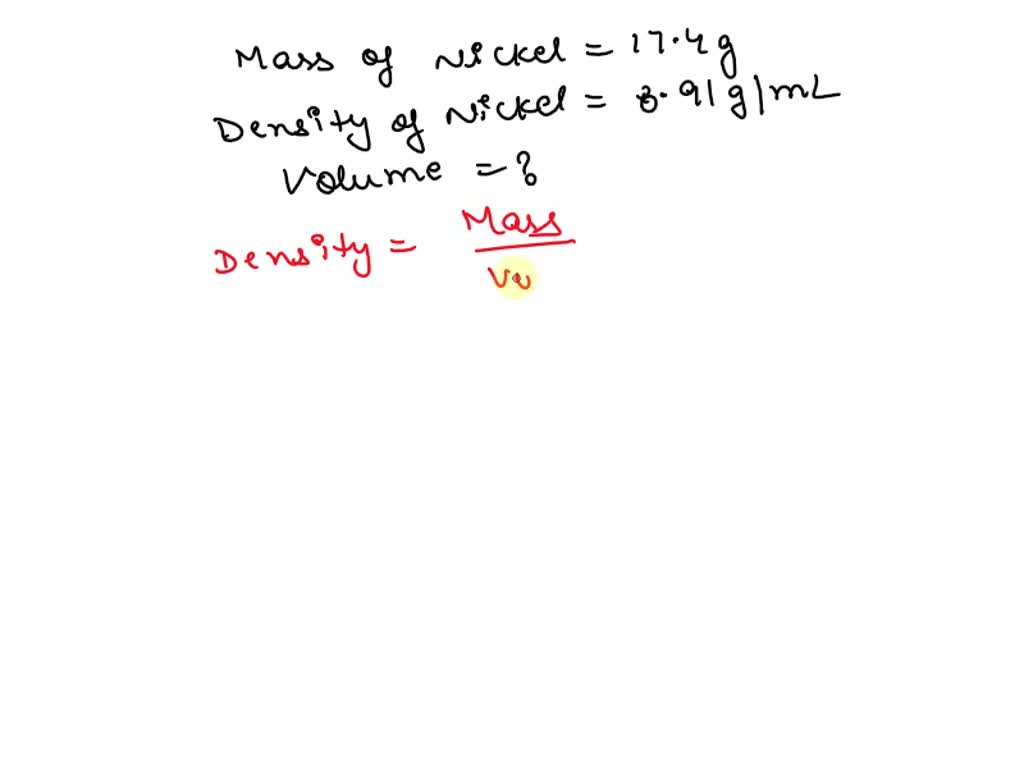 Mass of Nickel = 17.4 g
Density of Nickel = 8.91 g/mL
Volume = ?
Density = Mass